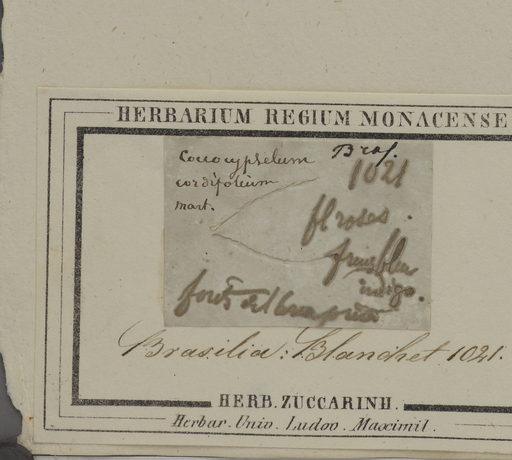 HERBARIUM REGIUM MONACENSE
Coccocypselum
cordifolium
mart.
Bras.
1021
fl roses.
fruis bleu
indigo.
Brasilia: Blanchet 1021.
HERB. ZUCCARINII.
Herbar. Univ. Ludov. Maximil.